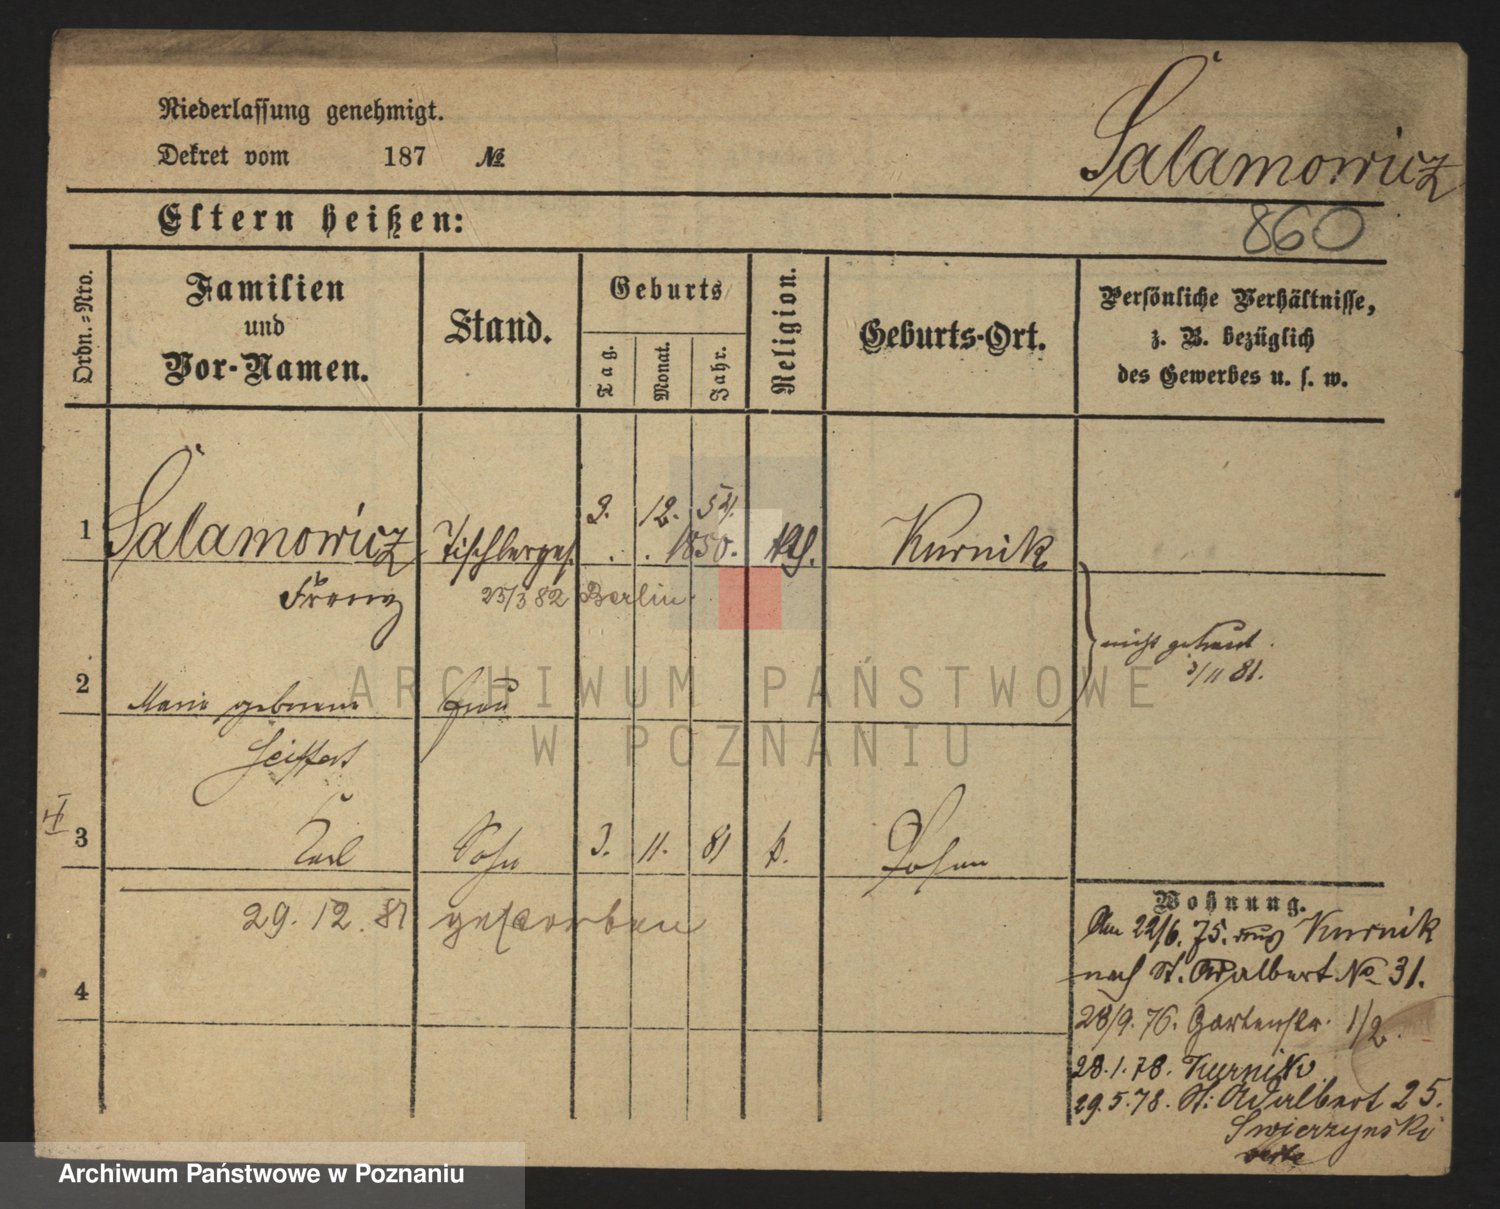 Salamowicz
Niederlassung genehmigt.
Dekret vom 187 №
860
Eltern heißen:
Ordn.-Nro.
Familien
und
Vor-Namen.
Stand.
Geburts
Tag.
Monat.
Jahr.
Religion.
Geburts-Ort.
Persönliche Verhältnisse,
z. B. bezüglich
des Gewerbes u. s. w.
2. 12. 54.
1 Salamowicz Tischlerges. 1850. Kurnik
Franz 25/3 82 Berlin
nicht getraut.
3/11 81.
2 Marie geborene Frau
Seiffert
3 Karl Sohn 3. 11. 81 k. Posen
29. 12. 81 gestorben
4
Wohnung.
Am 22/6. 75. aus Kurnik
nach St. Adalbert No 31.
28/9. 76. Gartenstr. 1/2.
28.1.78. Kurnik
29.5.78. St. Adalbert 25.
Swierzynski
ARCHIWUM PAŃSTWOWE
W POZNANIU
Archiwum Państwowe w Poznaniu